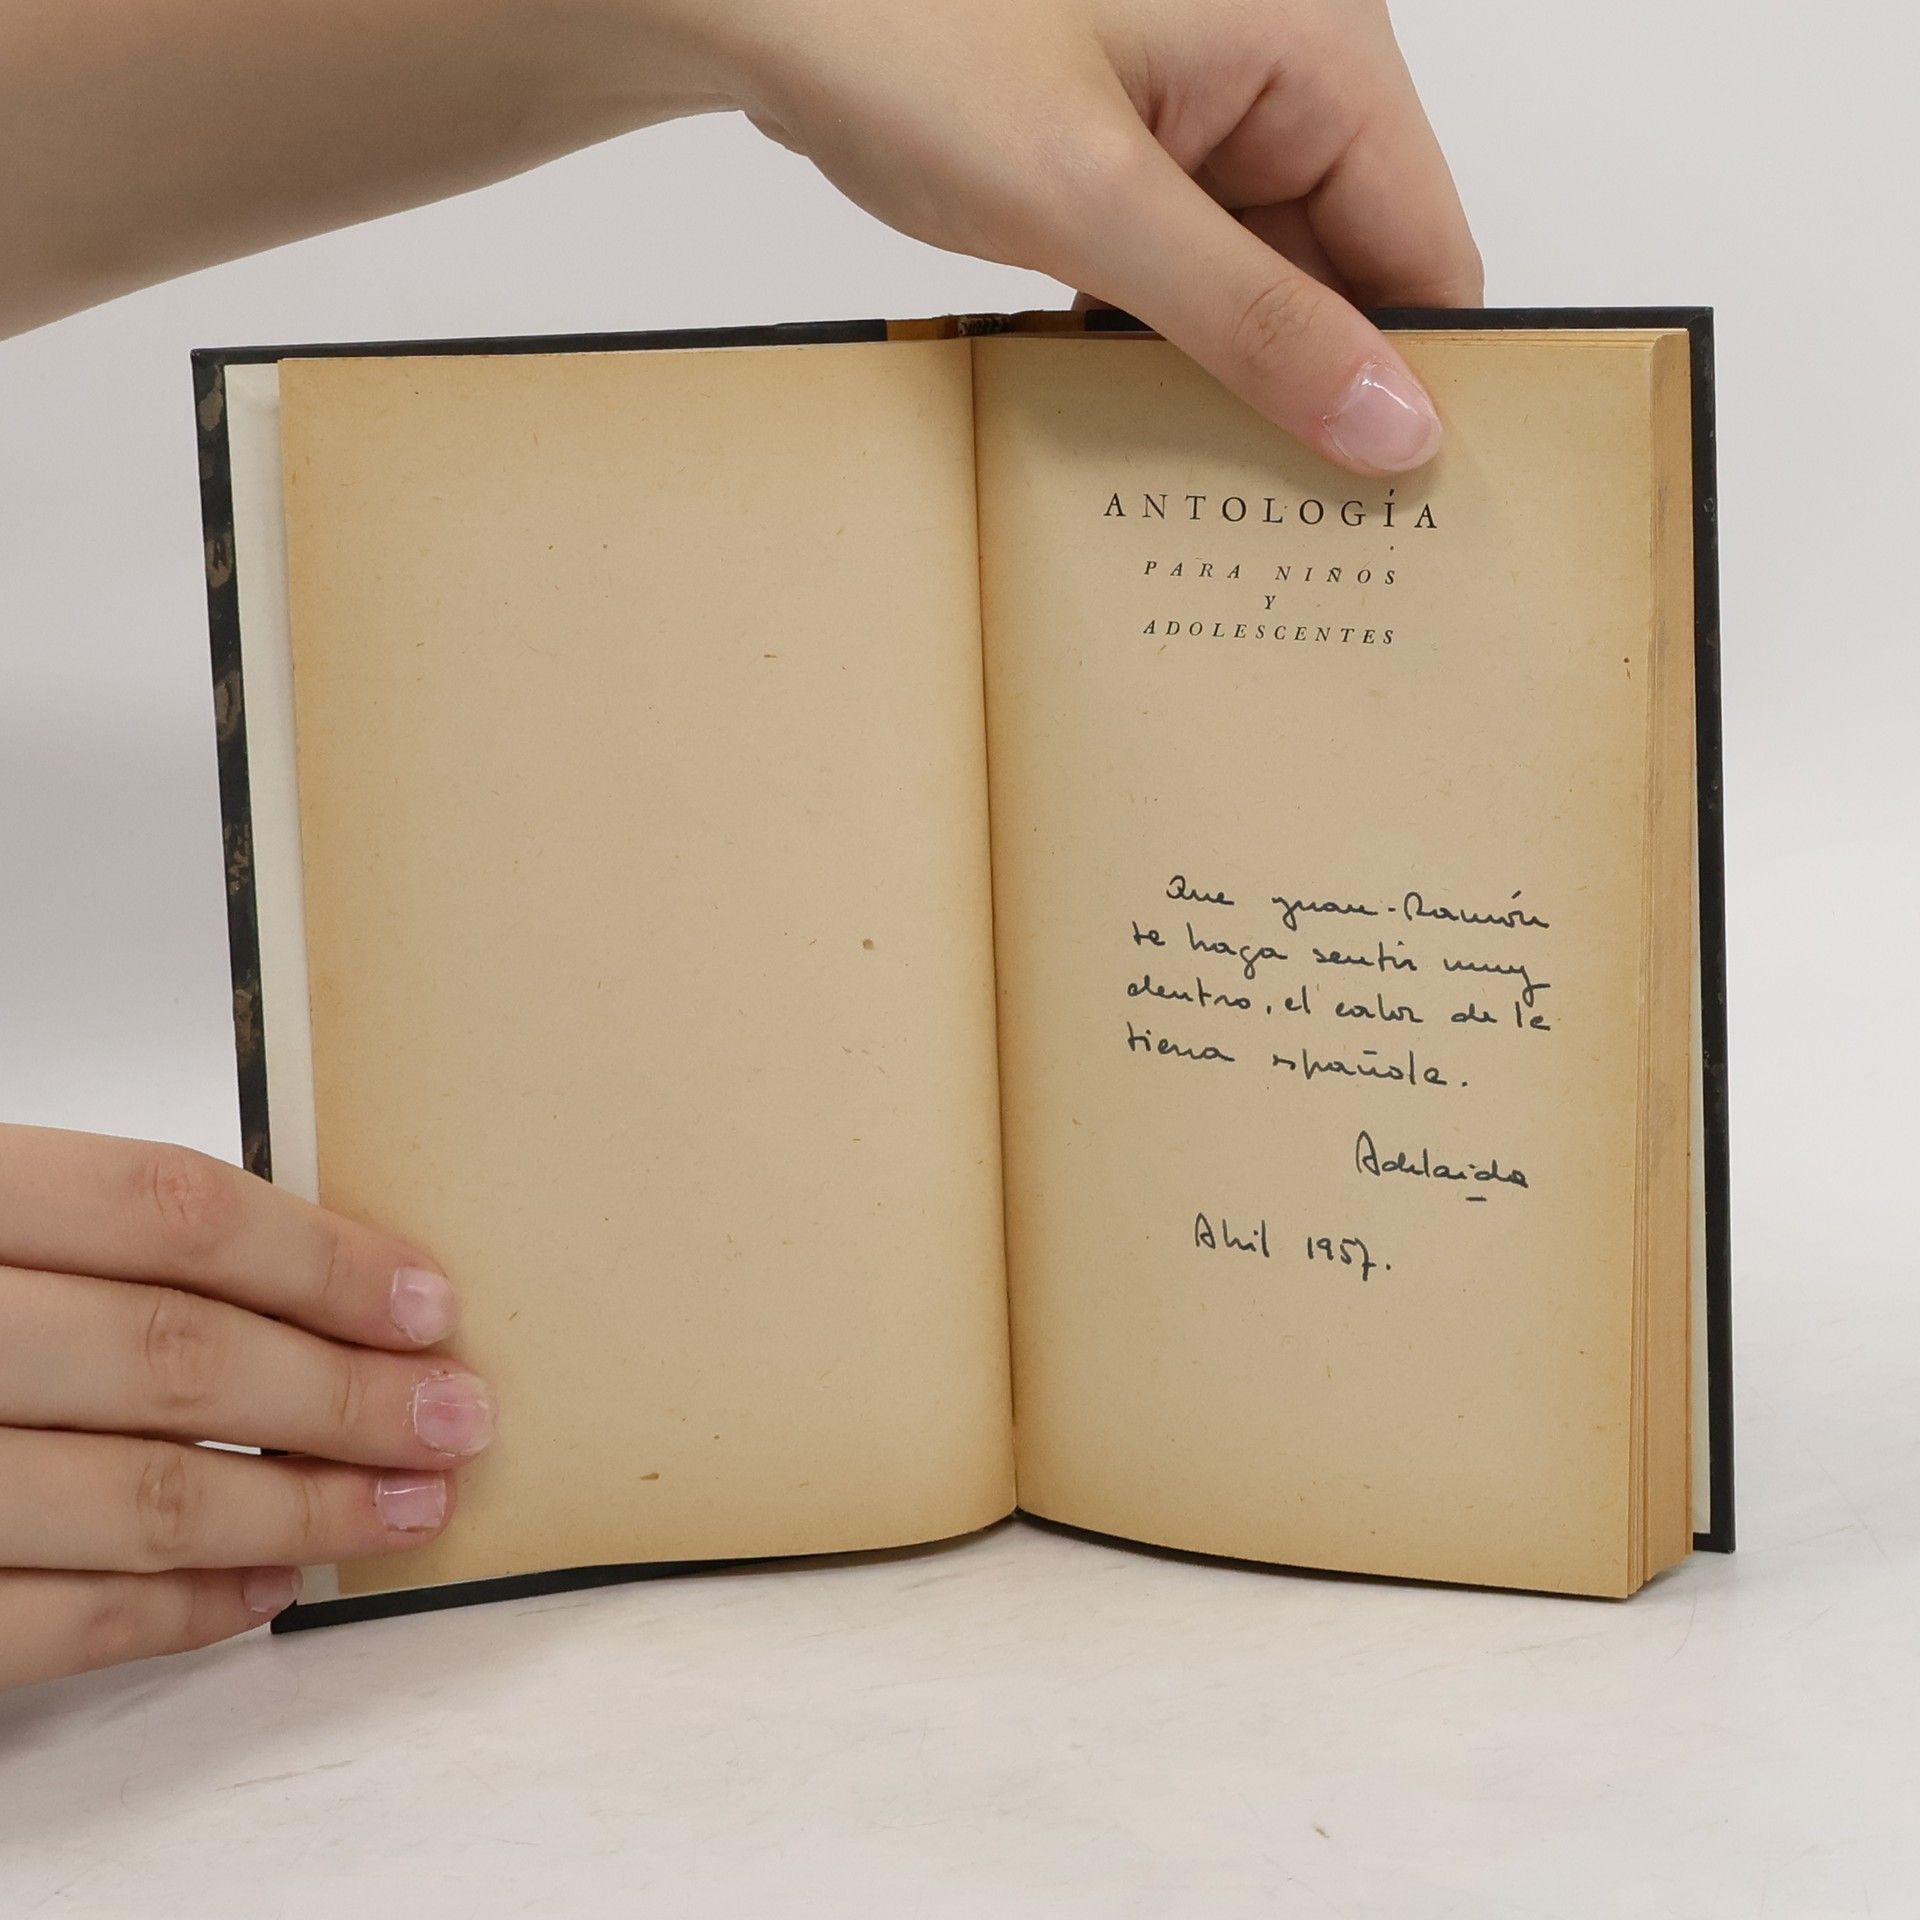 ANTOLOGÍA
PARA NIÑOS
Y
ADOLESCENTES
Que Juan-Ramón
te haga sentir muy
dentro, el calor de la
tierra española.
Adelaida
Abril 1957.